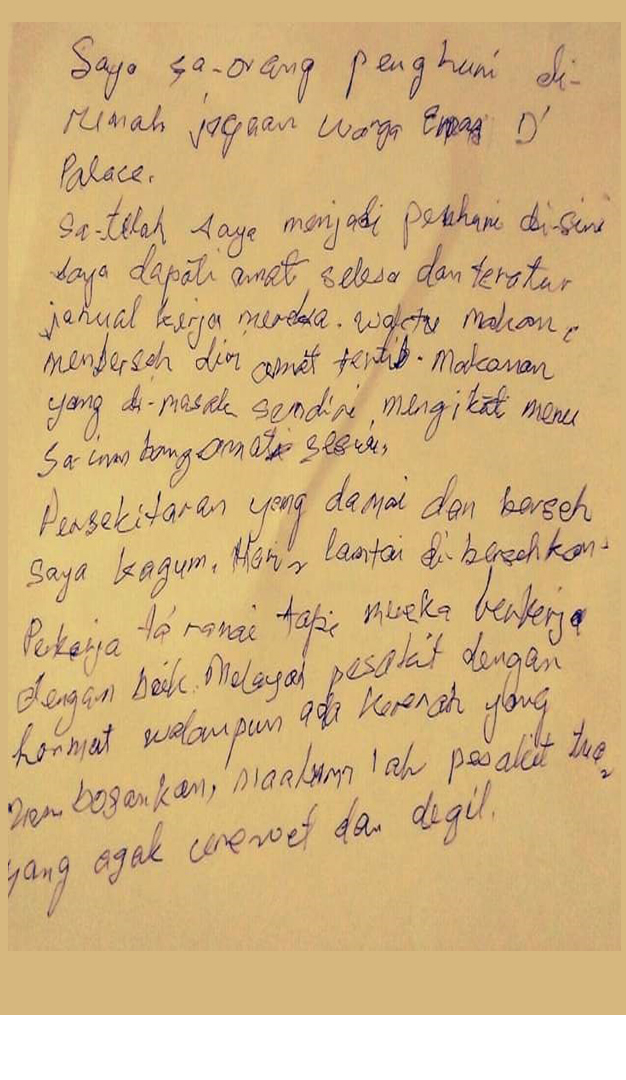 Saya sa-orang penghuni di-
rumah jagaan warga Emas D'
Palace.
Sa-telah saya menjadi penghuni di-sini
saya dapati amat selesa dan teratur
janual kerja mereka. waktu makan,
memberseh diri amat tertib. Makanan
yang di-masak sendiri, mengikut menu
sa-imbang amat sesuai,
Persekitaran yang damai dan berseh
saya kagum. Hari2 lantai di berseh kan.
Pekerja ta' ramai tapi mereka berkerja
dengan baik. Melayan pesakit dengan
hormat walaupun ada kerenah yang
membosankan, maalum lah pesakit tua2
yang agak cerewet dan degil.